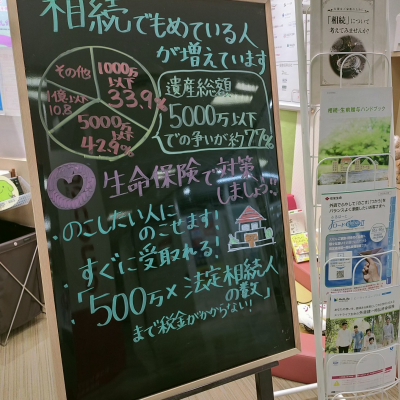 相続でもめている人
が増えています
その他
1000万
以下
33.9%
1億以下
10.8
5000万
以下
42.9%
遺産総額
5000万以下
での争いが約77%
生命保険で対策
しましょう!!
・のこしたい人に
のこせます!
・すぐに受取れる!
・「500万×法定相続人
の数」
まで税金がかからない!
「相続」について
考えてみませんか?
相続・生前贈与ハンドブック